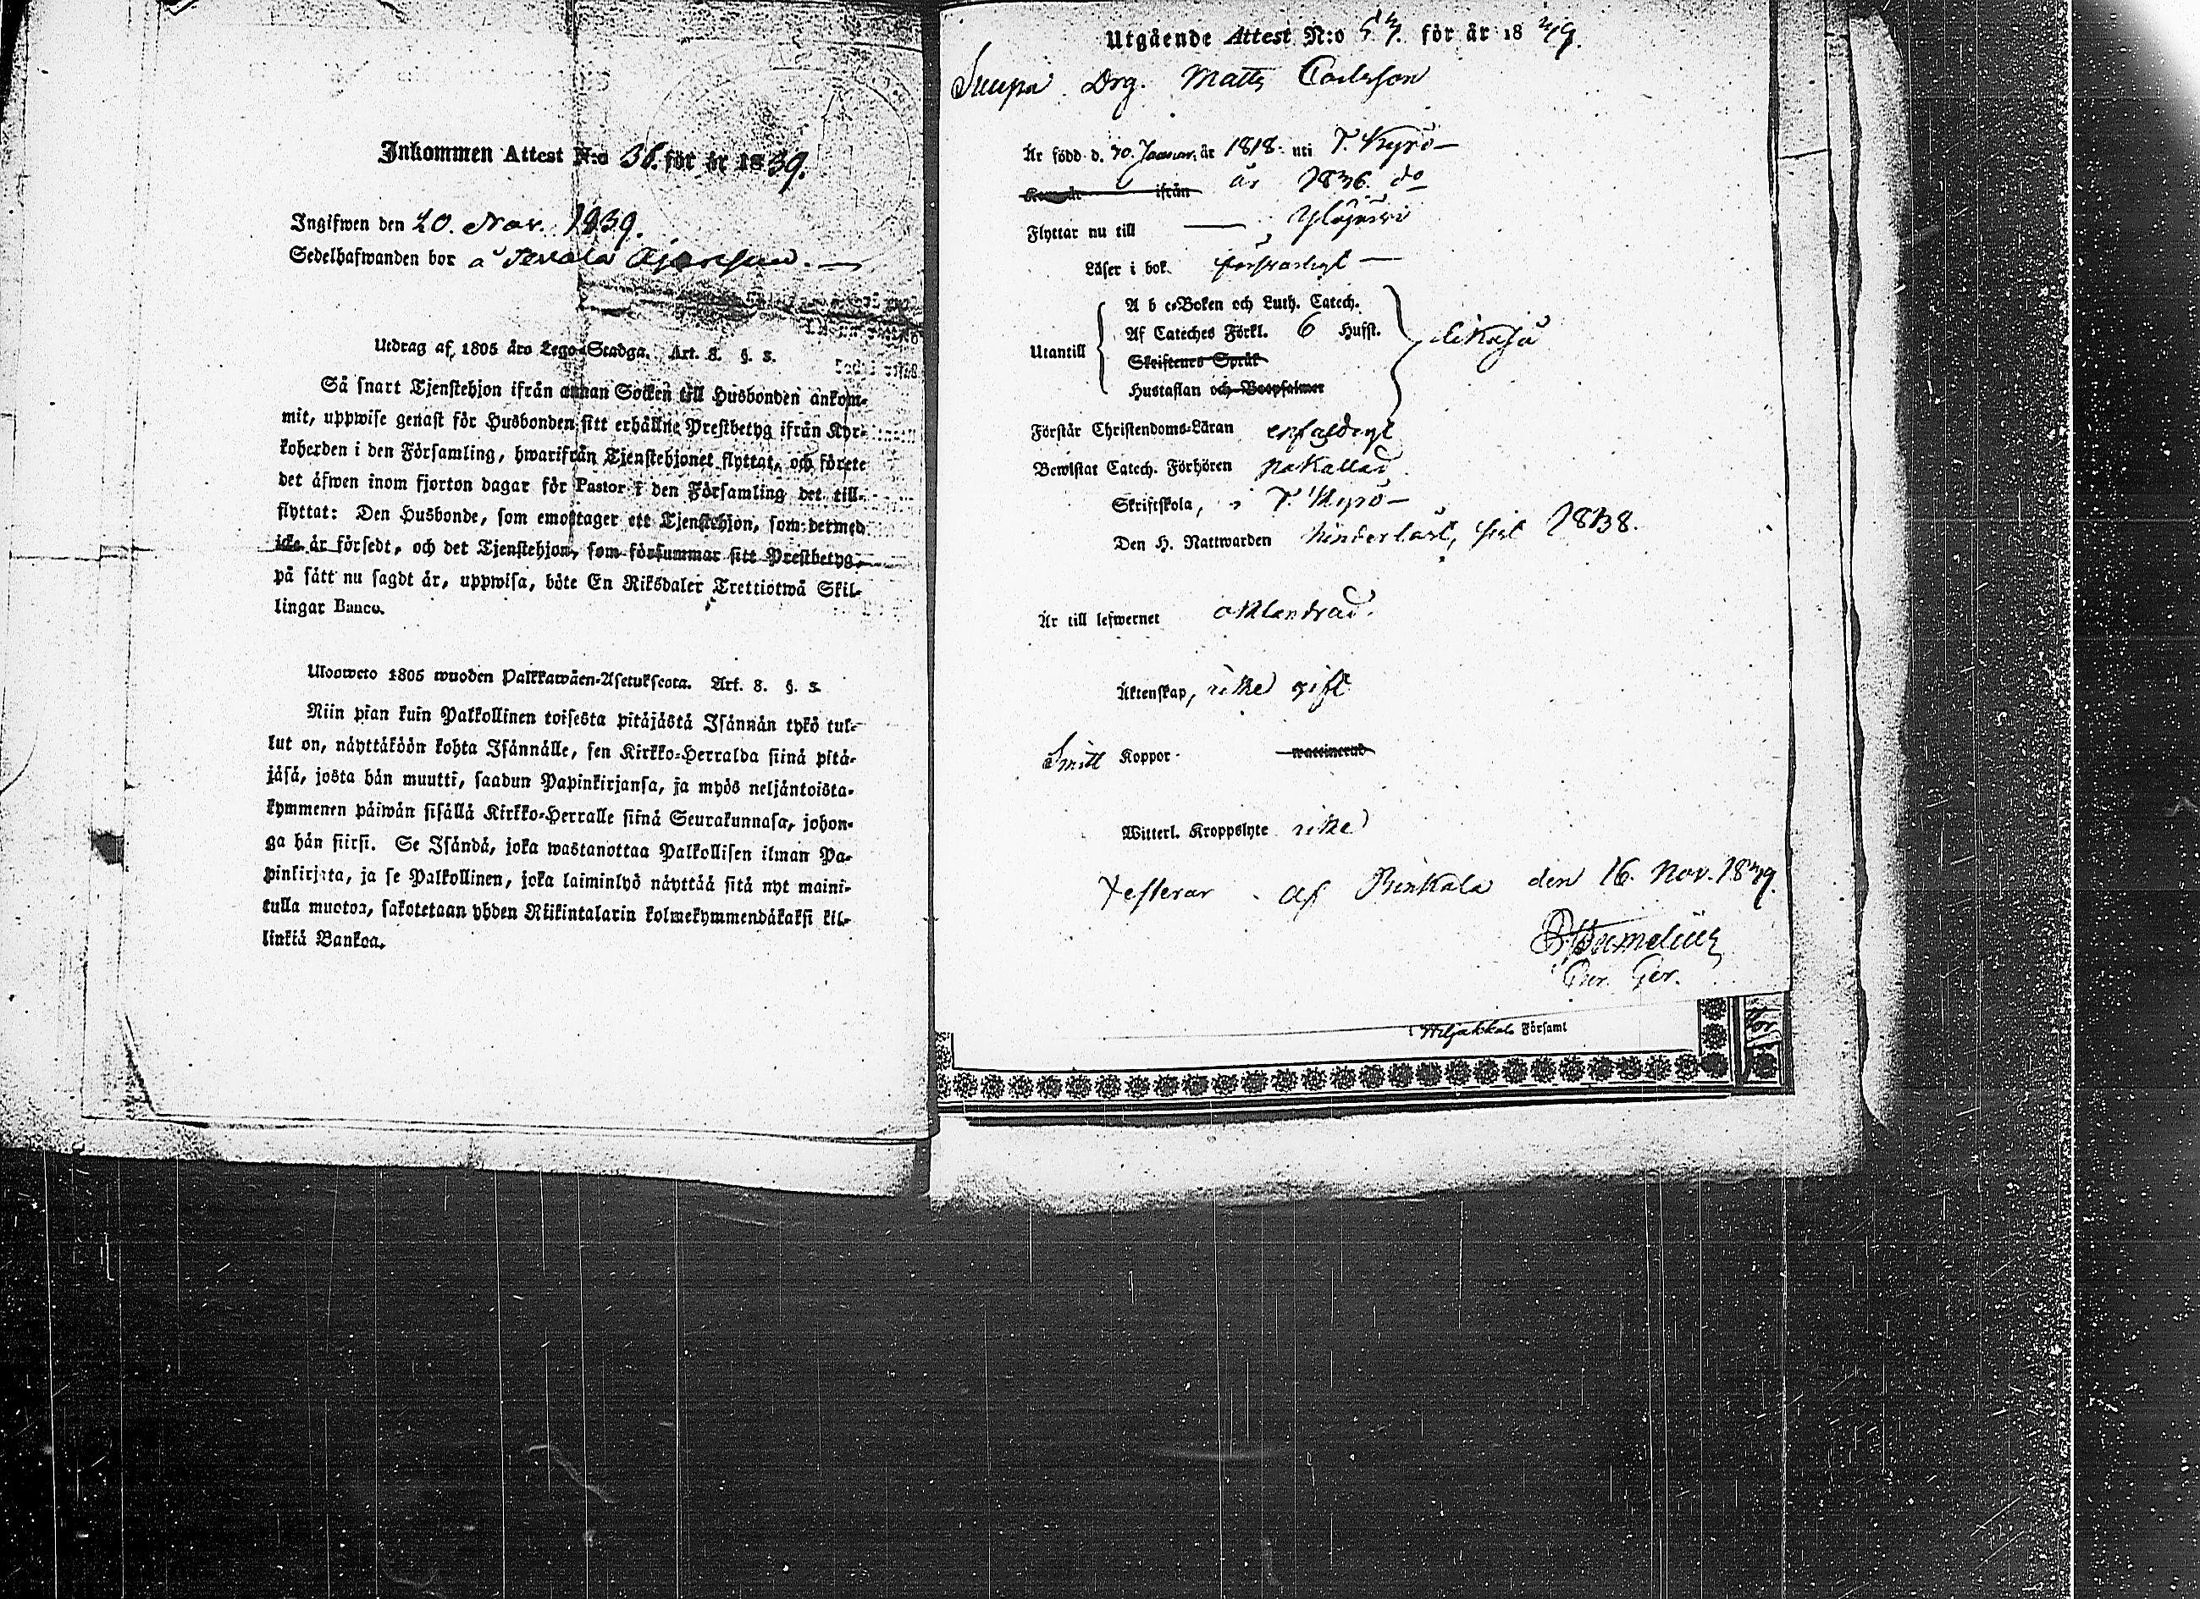 Inkommen Attest N:o 36. för år 1839.
Ingifwen den 20. Nov. 1839.
Sedelhafwanden bor å
Utdrag af 1805 års Lego-Stadga. Art. 8. §. 3.
Så snart Tjenstehjon ifrån annan Socken till Husbonden ankom-
mit, uppwise genast för Husbonden sitt erhållne Prestbetyg ifrån Kyr-
koherden i den Församling, hwarifrån Tjenstehjonet flyttat, och förete
det äfwen inom fjorton dagar för Pastor i den Församling det till-
flyttat: Den Husbonde, som emottager ett Tjenstehjon, som dermed
icke är försedt, och det Tjenstehjon, som försummar sitt Prestbetyg,
på sätt nu sagdt är, uppwisa, böte En Riksdaler Trettiotwå Skil-
lingar Banco.
Ulosweto 1805 wuoden Palkkawäen-Asetuksesta. Art. 8. §. 3.
Niin pian kuin Palkollinen toisesta pitäjästä Isännän tykö tul-
lut on, näyttäköön kohta Isännälle, sen Kirkko-Herralda siinä pitä-
jäsä, josta hän muutti, saadun Papinkirjansa, ja myös neljäntoista-
kymmenen päiwän sisällä Kirkko-Herralle siinä Seurakunnasa, johon-
ga hän siirsi. Se Isändä, joka wastanottaa Palkollisen ilman Pa-
pinkirjata, ja se Palkollinen, joka laiminlyö näyttää sitä nyt maini-
tulla muotoa, sakotetaan yhden Riikintalarin kolmekymmendäkaksi kil-
linkiä Bankoa.
Utgående Attest N:o 53. för år 1839.
Drg. Matts Carlsson
Är född d. 30. Januar. år 1818. uti T. Kyrö
Kom år ifrån år 1836. do
Flyttar nu till Ylöjärvi
Läser i bok. försvarligt
A b c-Boken och Luth. Catech.
Af Cateches Förkl. 6 Hufst.
Utantill
Skriftenes Språk
likaså
Hustaflan och Botpsalmer
Förstår Christendoms-Läran enfaldigt
Bewistat Catech. Förhören påkallad
Skriftskola, i T. Kyrö
Den H. Nattwarden hinderlöst, sist 1838.
Är till lefwernet oklandrad.
Äktenskap, icke gift
Smitt Koppor waccinerad
Witterl. Kroppslyte icke
Testerar af den 16. Nov. 1839.
Församl